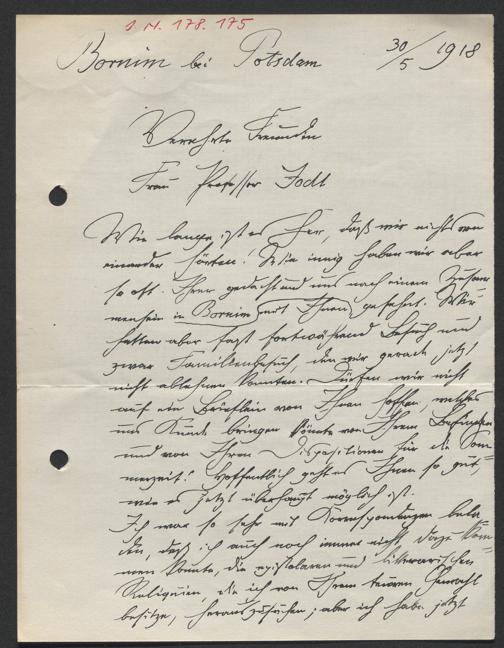 J. N. 178.175
Bornim bei Potsdam 30/5 1918
Verehrte Freundin
Frau Professor Jodl
Wie lange ist es her, daß wir nichts von
einander hörten! Wie innig haben wir aber
so oft Ihrer gedacht und uns nach einem Zusam
mensein in Bornim mit Ihnen gesehnt. Wir
hatten aber fast fortwährend Besuch und
zwar Familienbesuch, den wir gerade jetzt
nicht ablehnen konnten. Dürfen wir nicht
auf ein Brieflein von Ihnen hoffen, welches
uns Kunde bringen könnte von Ihrem Befinden
und von Ihren Dispositionen für die Som=
merzeit! Hoffentlich geht es Ihnen so gut,
wie es jetzt überhaupt möglich ist.
Ich war so sehr mit Korrespondenzen bela
den, daß ich auch noch immer nicht dazu kom=
men konnte, die epistolaren und litterarischen
Reliquien, die ich von Ihrem teuren Gemahl
besitze, herauszusuchen; aber ich habe jetzt